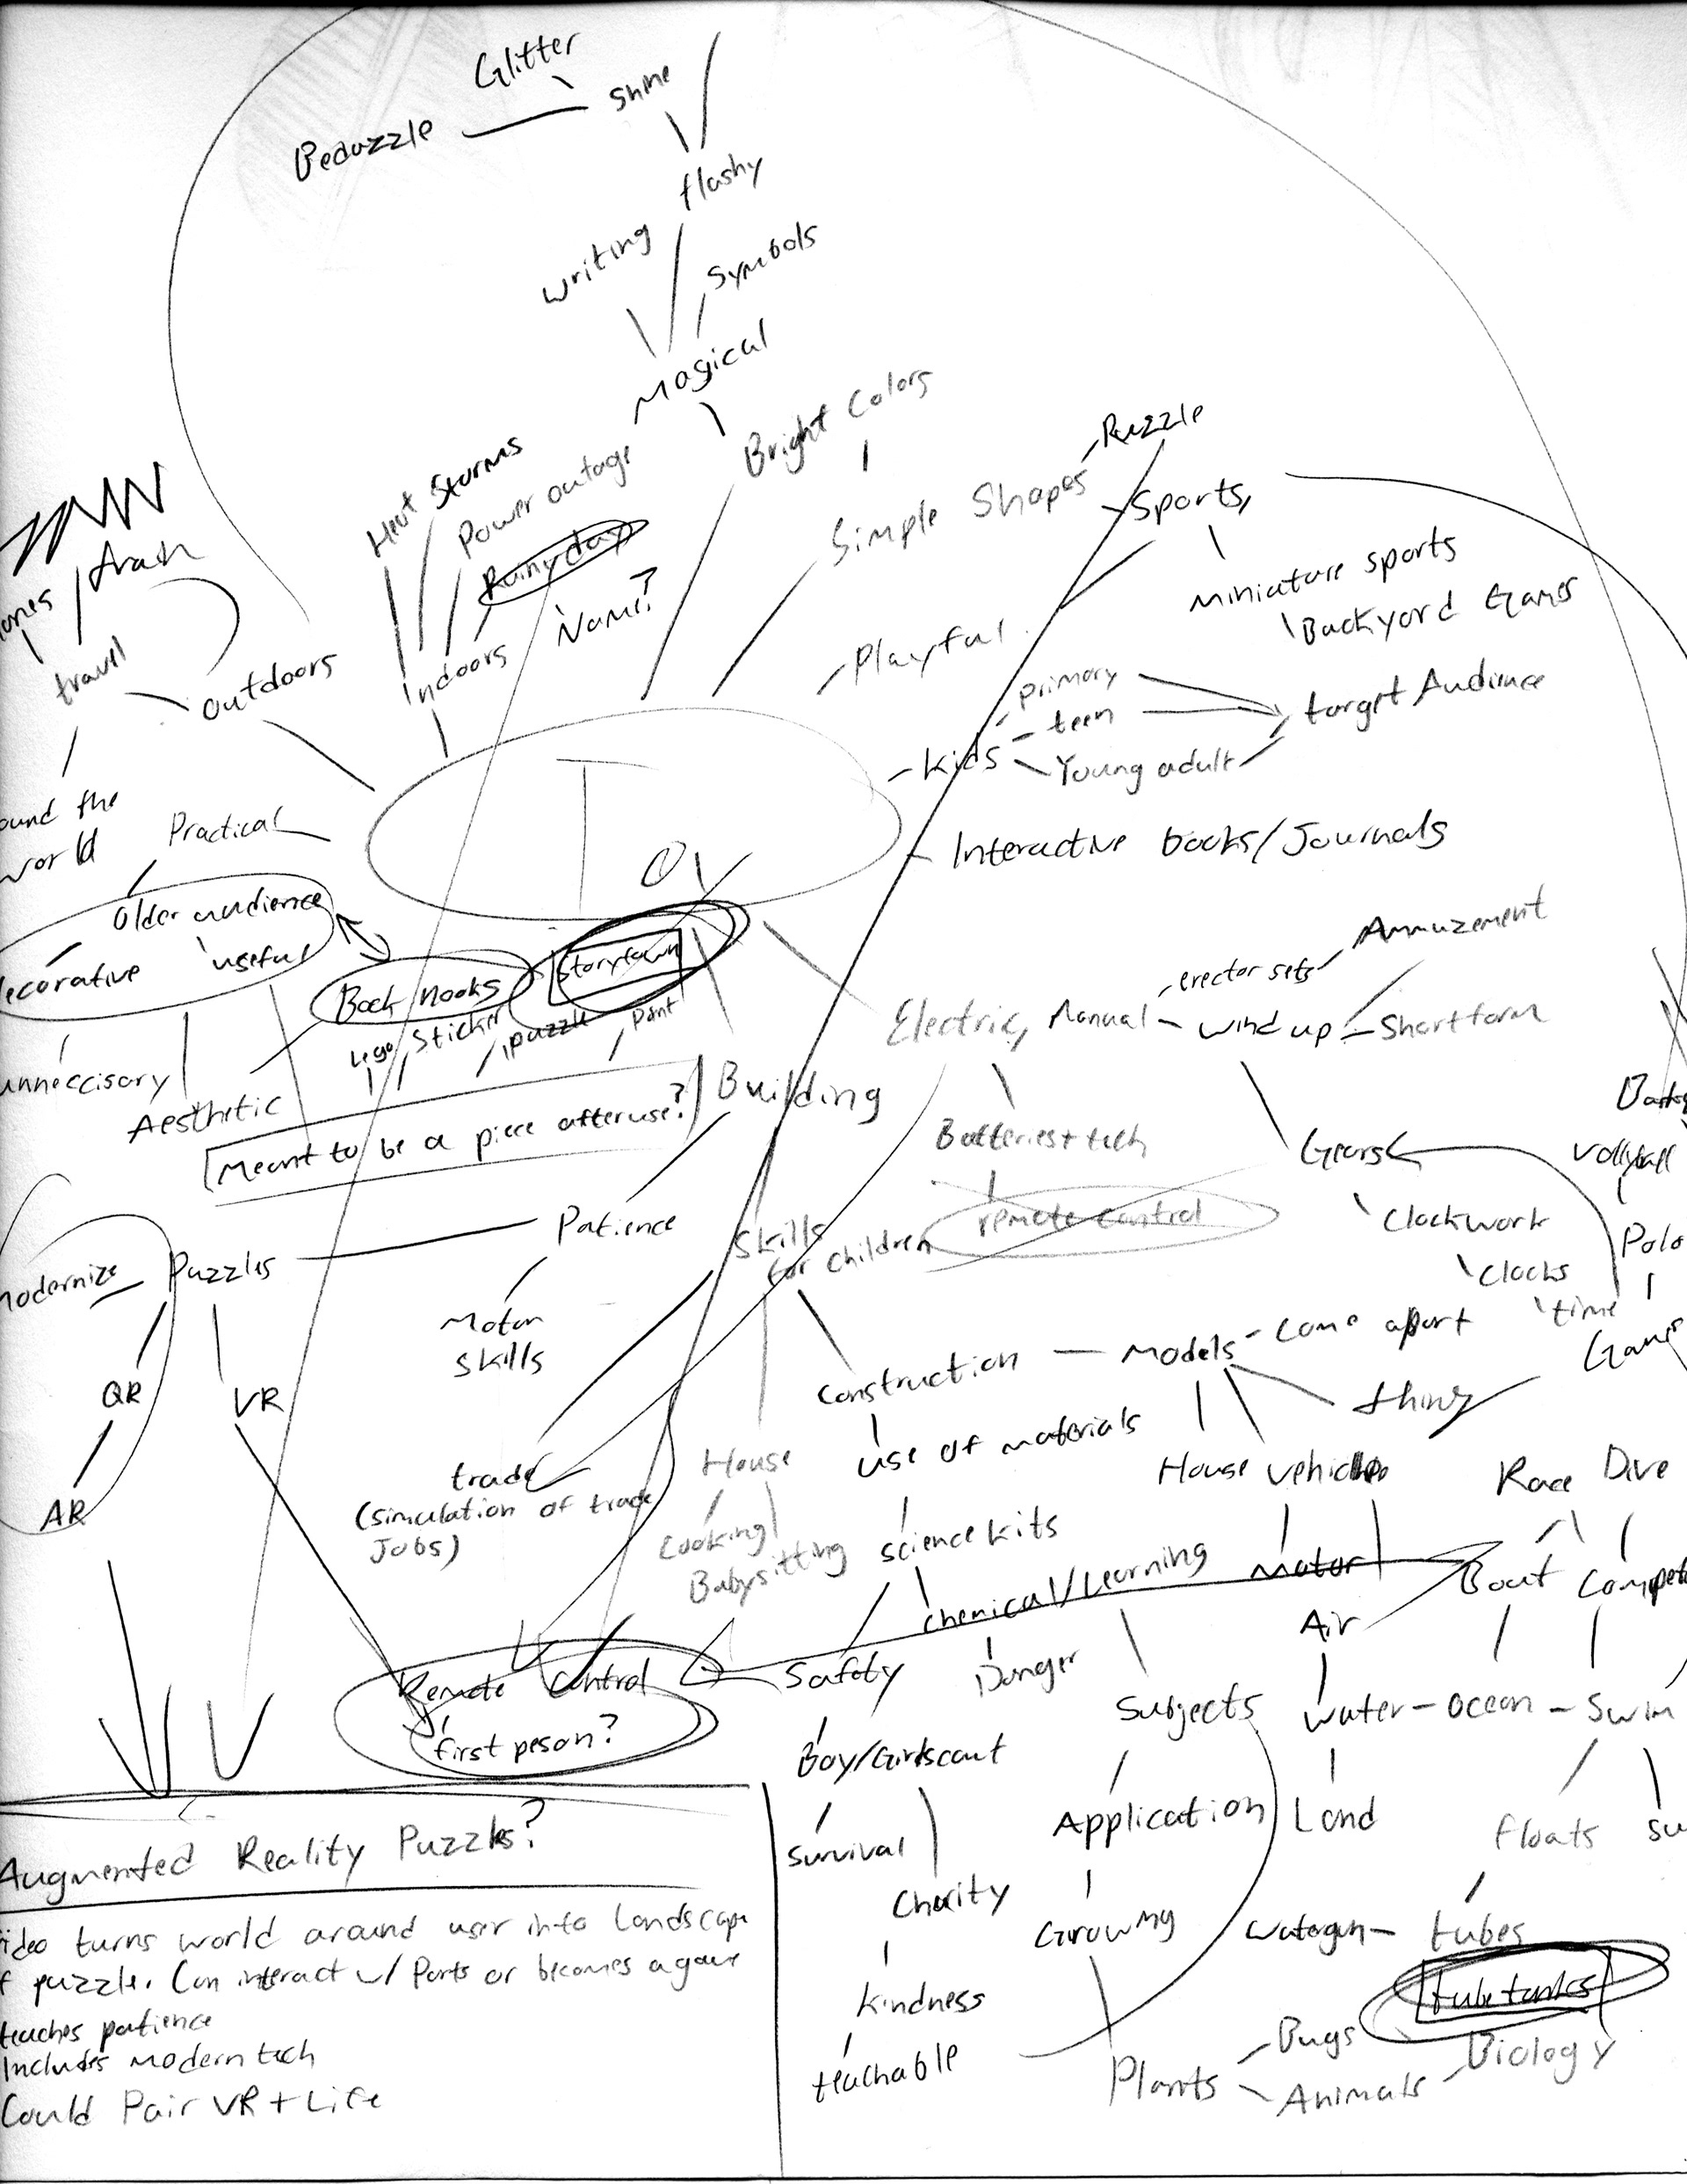 Glitter
Shine
Bedazzle
flashy
writing
Symbols
Magical
Bright Colors
Puzzle
Simple Shapes
Sports,
Heat Storms
Power outage
Rainy day
Name?
miniature sports
Backyard Games
Playful
travel
Outdoors
Indoors
primary
teen
target Audience
Kids
Young adult
ound the
world
Practical
Interactive books/Journals
TOY
Older audience
ecorative
useful
Book Nooks
Storytown
Ammuzement
erector sets
Electric, Manual
wind up
Short form
Lego
Sticker
puzzle
Paint
unneccisary
Aesthetic
Building
Meant to be a piece after use?
Batteries + tech
remote control
Gears
Vollyball
Clockwork
Polo
Clocks
time
Patience
Skills
for children
modernize
Puzzles
Motor
Skills
Construction
Models
Come apart
thing
Game
QR
VR
AR
trade
(simulation of trade
Jobs)
House
use of materials
House
vehicles
Race
Dive
Cooking
Babysitting
science kits
chemical/Learning
Motor
Boat
Compet
Air
Remote Control
first peson?
Safety
Danger
Subjects
water
Ocean
Swim
Boy/Girlscout
Application
Land
floats
su
Survival
Charity
Growing
watergun
tubes
tube tanks
kindness
teachable
Plants
Bugs
Animals
Biology
Augmented Reality Puzzles?
ideo turns world around user into landscape
f puzzle. Can interact w/ Parts or becomes a game
teaches patience
Includes modern tech
Could Pair VR + Life